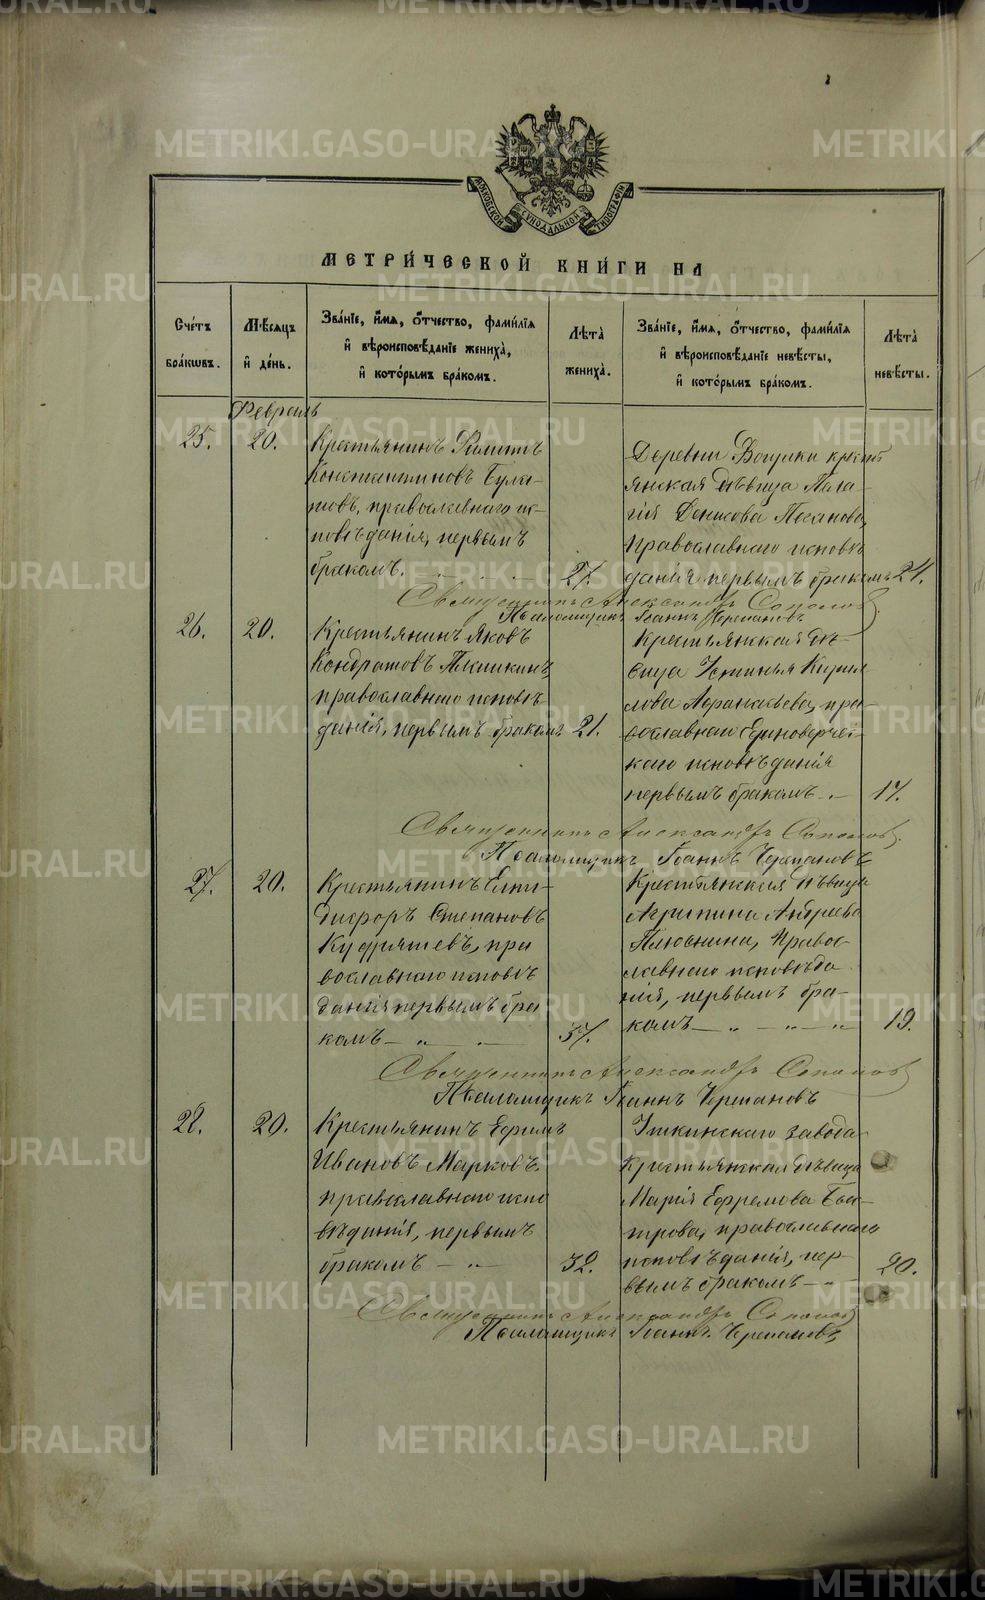 METRIKI.GASO-URAL.RU
МОСКОВСКОЙ СУНОДАЛЬНОЙ ТИПОГРАФІИ
МЕТРИ́ЧЕСКОЙ КНИ́ГИ НА
Сче́тъ бра́кѡвъ.
Мѣ́сяцъ и҆ де́нь.
Зва́нїе, и҆́мя, ѻ҆́тчество, фами́лїя и҆ вѣроисповѣ́данїе жениха̀, и҆ кото́рымъ бра́комъ.
Лѣ́та жениха̀.
Зва́нїе, и҆́мя, ѻ҆́тчество, фами́лїя и҆ вѣроисповѣ́данїе невѣ́сты, и҆ кото́рымъ бра́комъ.
Лѣ́та невѣ́сты.
Февраль
25.
20.
Крестьянинъ Филиппъ
Константиновъ Була-
товъ, православнаго ис-
повѣданія, первымъ
бракомъ.
27.
Деревни крестъ
янская дѣвица Пела-
гія Денисова
Православнаго исповѣ
данія первымъ бракомъ
24.
Священникъ Александръ
Псаломщикъ Іоаннъ Черепановъ
26.
20.
Крестьянинъ Яковъ
Кондратовъ
православнаго исповѣ
данія, первымъ бракомъ
21.
Крестьянская дѣ-
вица Устинья Кирил
лова Афанасьева, пра-
вославнаго Единоверчес
каго исповѣданія
первымъ бракомъ
17.
Священникъ Александръ
Псаломщикъ Іоаннъ Черепановъ
27.
20.
Крестьянинъ Елпи-
дифоръ Степановъ
Кудряшевъ, пра
вославнаго исповѣ
данія первымъ бра
комъ — „ —
37.
Крестьянская дѣвица
Агрипина Андреева
Плюснина, Право-
славнаго исповѣда
нія, первымъ бра-
комъ — „ — „ — „
19.
Священникъ Александръ
Псаломщикъ Іоаннъ Черепановъ
28.
20.
Крестьянинъ Ефимъ
Ивановъ Марковъ
православнаго испо
вѣданія, первымъ
бракомъ — „
32.
Уткинскаго завода
Крестьянская дѣвица
Марія Ефремова Быс-
трова, православнаго
исповѣданія, пер-
вымъ бракомъ —
20.
Священникъ Александръ
Псаломщикъ Іоаннъ Черепановъ